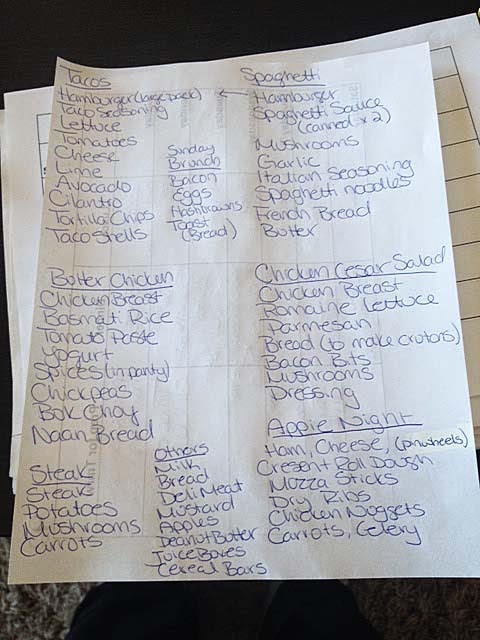 Tacos
Hamburger (large pack)
Taco Seasoning
Lettuce
Tomatoes
Cheese
Lime
Avocado
Cilantro
Tortilla Chips
Taco Shells
Sunday
Brunch
Bacon
Eggs
Hashbrowns
Toast
(Bread)
Spaghetti
Hamburger
Spaghetti Sauce
(canned x 2)
Mushrooms
Garlic
Italian Seasoning
Spaghetti noodles
French Bread
Butter
Butter Chicken
Chicken Breast
Basmati Rice
Tomato Paste
Yogurt
Spices (in panty)
Chickpeas
Bok Choy
Naan Bread
Chicken Cesar Salad
Chicken Breast
Romaine Lettuce
Parmesan
Bread (to make crutons)
Bacon Bits
Mushrooms
Dressing
Steak
Steak
Potatoes
Mushrooms
Carrots
Others
Milk
Bread
Deli Meat
Mustard
Apples
Peanut Butter
Juice Boxes
Cereal Bars
Appie Night
Ham, Cheese, (pinwheels)
Cresent Roll Dough
Mozza Sticks
Dry Ribs
Chicken Nuggets
Carrots, Celery